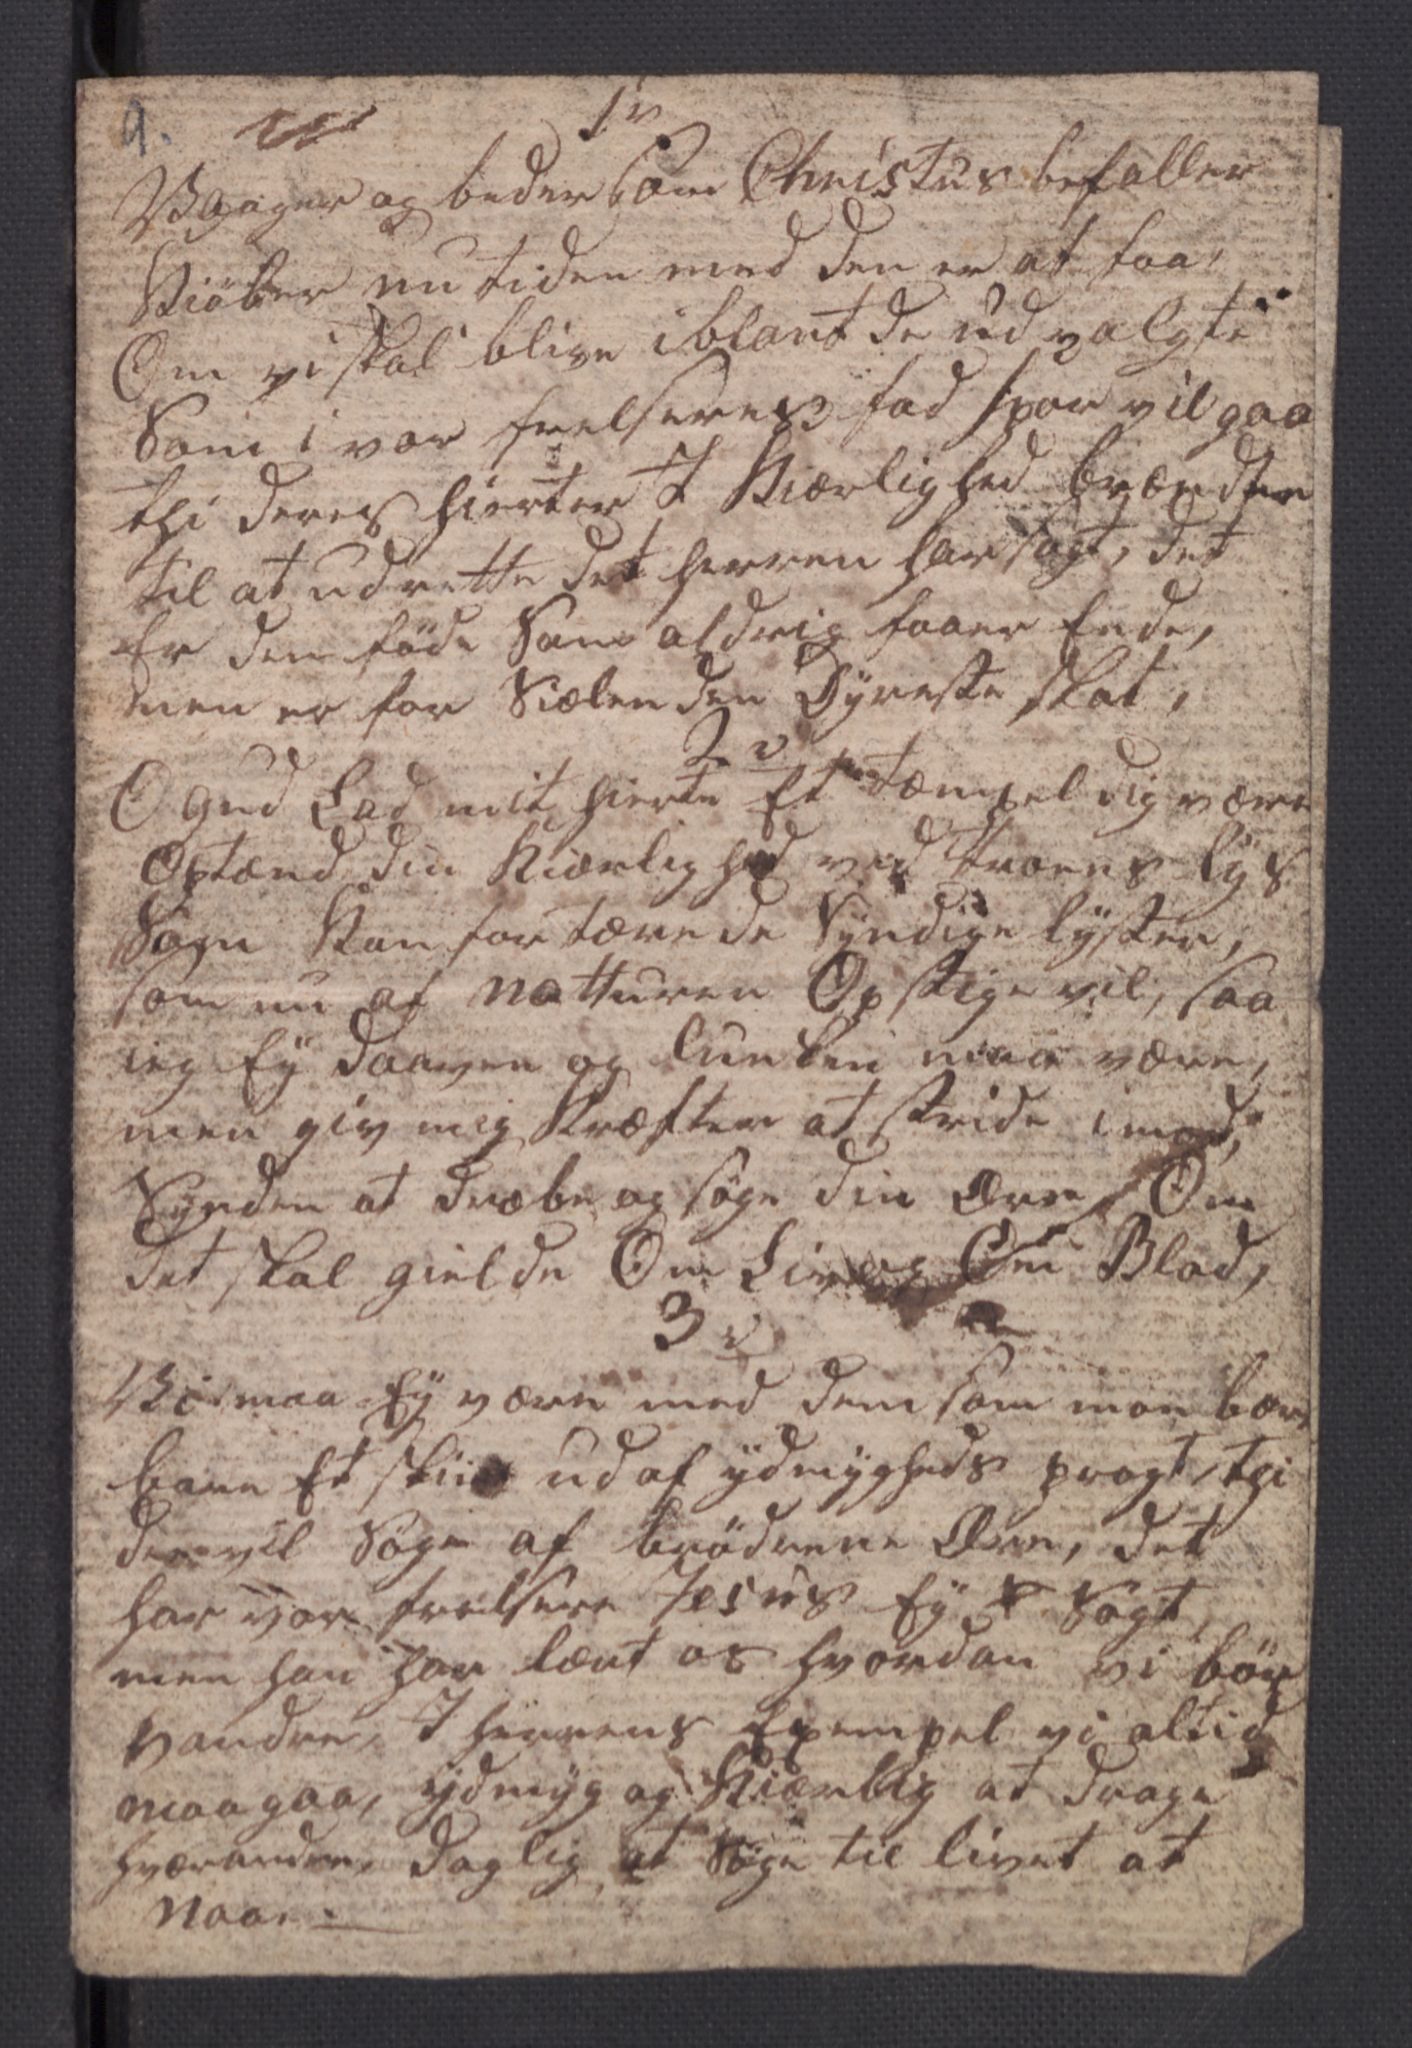 9.
1 v
Vaager og beder som Christus befaller
Kiöber nu tiden med den er at faa,
Om vi skal blive iblant de udvalgte
Som i vor frelseres fod spor vil gaa
thi deres hierter I Kiærlighed brænder
til at udrette det herren har sagt, det
Er den föde Som aldrig faaer Ende,
men er for Siælen den Dÿreste skat,
2 v
O Gud Lad mit hierte Et tæmpel dig være
Optænd din Kiærlighed ved troens lÿs
Som Kan fortære de Sÿndige lÿster,
som nu af natturen Opstige vil, saa
ieg Eÿ daaven og lunken maa være,
men giv mig Kræfter at stride imod,
Synden at dræbe og söge din Ære, Om
det skal gielde Om Liv og Om Blod,
3 v
Vi maa Eÿ være med dem som mon bære
bare Et skin ud af ÿdmÿgheds pragt, thi
der vil Söge af brödrene Ære, det
har vor frelsere Jesus Eÿ Sögt,
men han har lært os hvordan vi bör
vandre, I herrens Exempel vi altid
maa gaa, ÿdmÿg og Kiærlig at drage
hverandre, daglig at Söge til livet at
Naa.